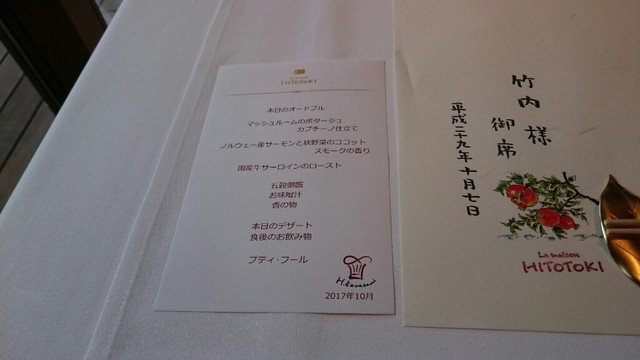 HiTOTOKi
本日のオードブル
マッシュルームのポタージュ
カプチーノ仕立て
ノルウェー産サーモンと秋野菜のココット
スモークの香り
国産牛サーロインのロースト
五穀御飯
お味噌汁
香の物
本日のデザート
食後のお飲み物
プティ・フール
2017年10月
竹内様
御席
平成二十九年十月七日
La maison
HiTOTOKi